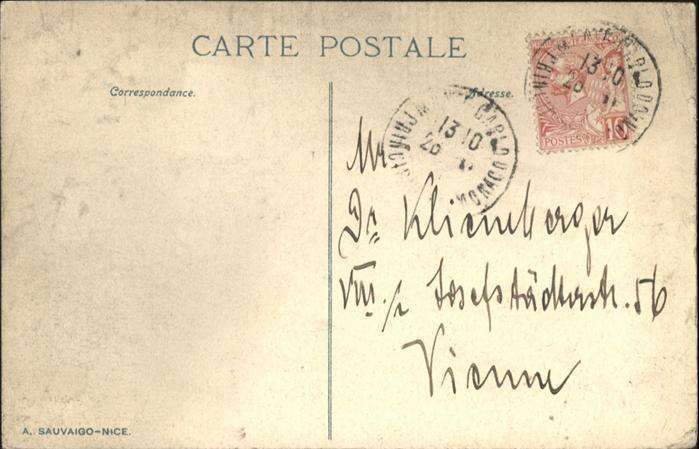 CARTE POSTALE
Correspondance.
Adresse.
MONTE CARLO
13 10
26
MONACO
POSTES
10
Mr
Dr Klienberger
VIII./2 Josefstädterstr. 56
Vienne
A. SAUVAIGO-NICE.